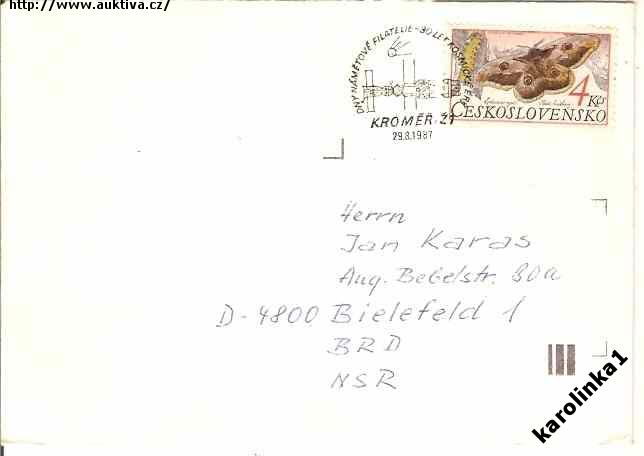 http://www.auktiva.cz/
DNY NÁMĚTOVÉ FILATELIE - 30 LET KOSMICKÉ ÉRY
KROMĚŘÍŽ 1
29.8.1987
4 Kčs
ČESKOSLOVENSKO
Herrn
Jan Karas
Aug. Bebelstr. 80a
D-4800 Bielefeld 1
BRD
NSR
karolinka1